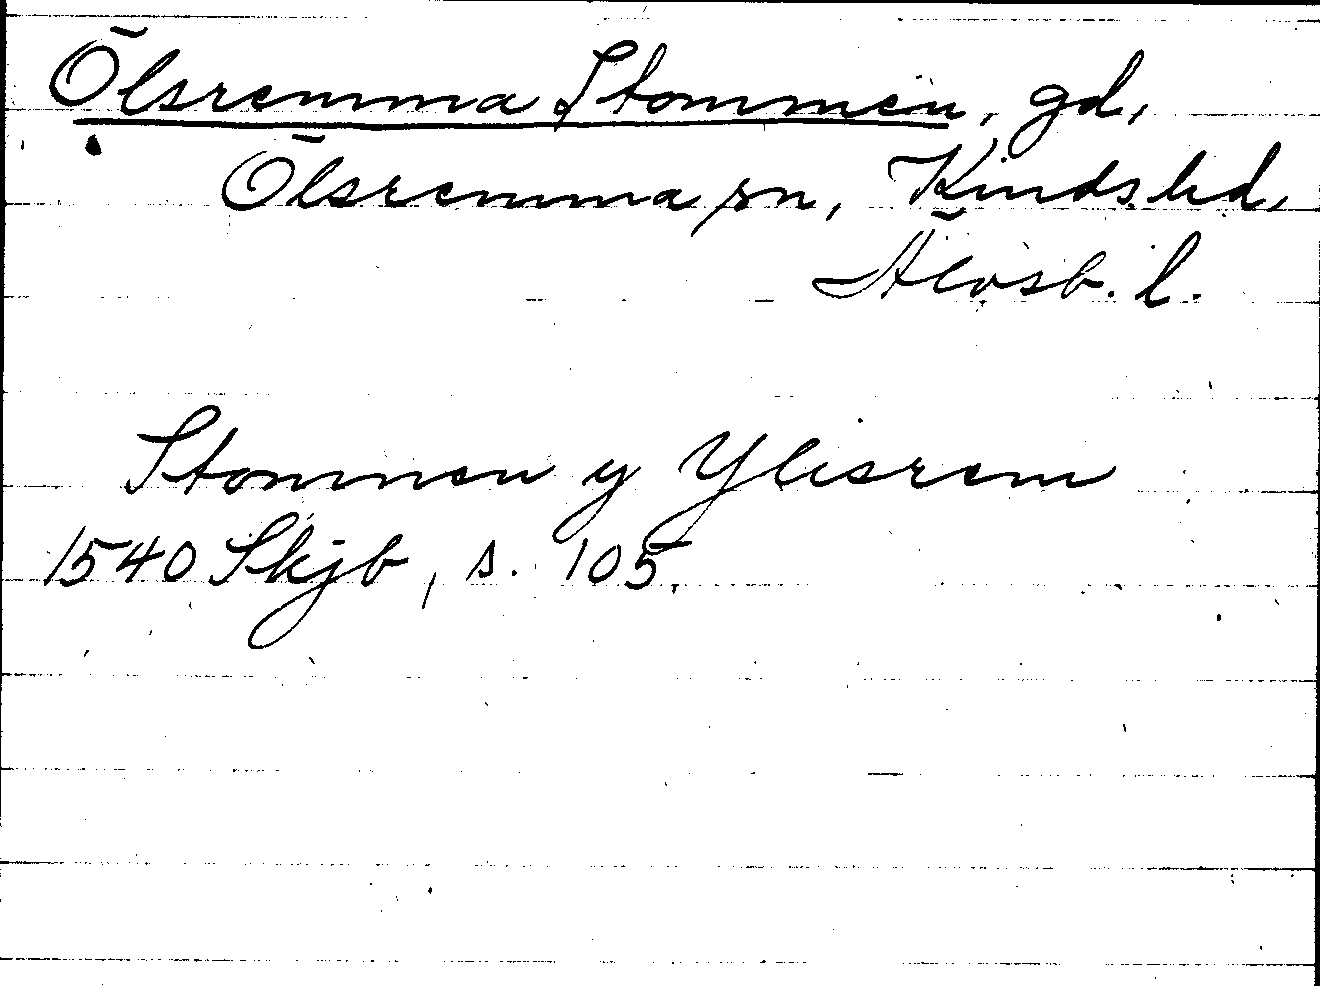 Ölsremma Stommen, gd,
Ölsremma sn, Kinds hd,
Älvsb. l.
Stommen y Ylisrem
1540 Skjb, s. 105.